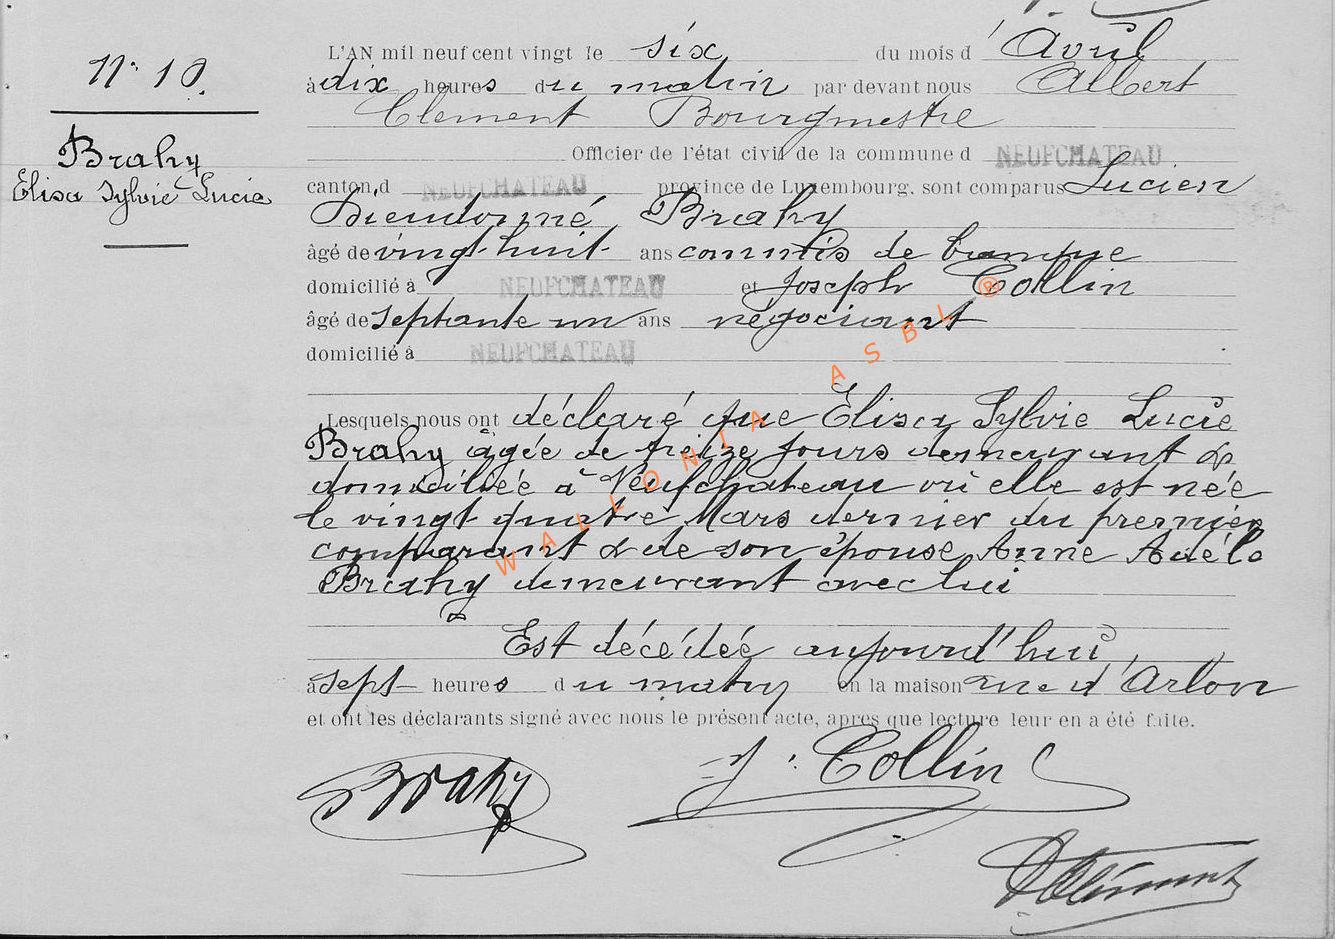 N° 10.
Brahy
Elisa Sylvie Lucie
L'AN mil neuf cent vingt le six du mois d'Avril
à dix heures du matin par devant nous Albert
Clement Bourgmestre
Officier de l'état civil de la commune d NEUFCHATEAU
canton d NEUFCHATEAU province de Luxembourg, sont comparus Lucien
Dieudonné Brahy
âgé de vingt-huit ans commis de banque
domicilié à NEUFCHATEAU et Joseph Collin
âgé de septante un ans négociant
domicilié à NEUFCHATEAU
Lesquels nous ont déclaré que Elisa Sylvie Lucie
Brahy âgée de treize jours demeurant &
domiciliée à Neufchateau où elle est née
le vingt quatre Mars dernier du premier
comparant & de son épouse Anne Adèle
Brahy demeurant avec lui
Est décédée aujourd'hui
à sept heures du matin en la maison rue d'Arlon
et ont les déclarants signé avec nous le présent acte, après que lecture leur en a été faite.
Brahy
J. Collin
AClément
WALLONIA ASBL ®